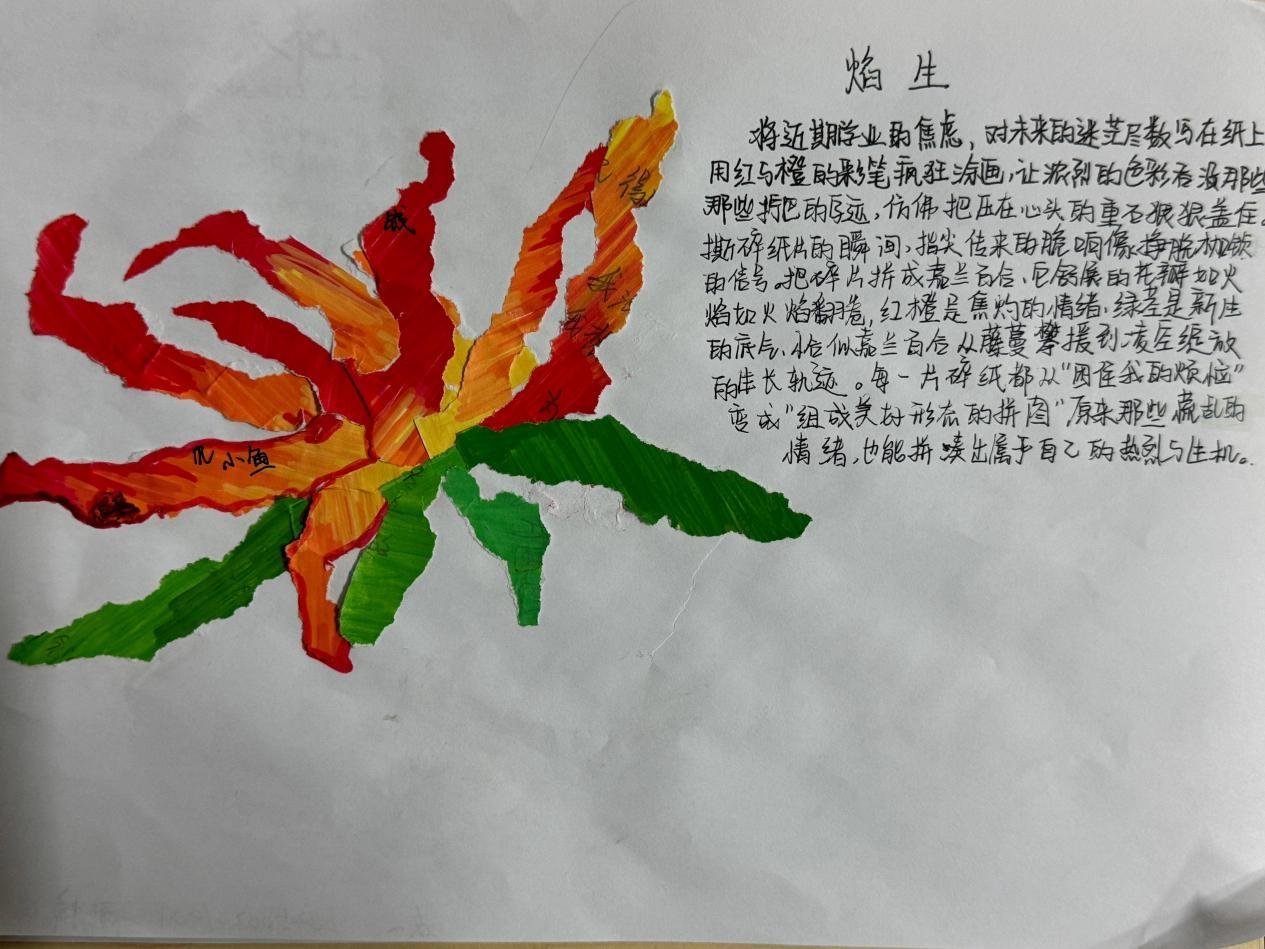 焰生
将近期学业的焦虑，对未来的迷茫尽数写在纸上
用红与橙的彩笔疯狂涂画，让浓烈的色彩吞没那些
那些拧巴的字迹，仿佛把压在心头的重石狠狠盖住。
撕碎纸片的瞬间，指尖传来的脆响像挣脱枷锁
的信号。把碎片拼成嘉兰百合，它舒展的花瓣如火
焰如火焰翻卷，红橙是焦灼的情绪，绿茎是新生
的底气，恰似嘉兰百合从藤蔓攀援到凌空绽放
的生长轨迹。每一片碎纸都从“困住我的烦恼”
变成“组成美好形态的拼图”原来那些慌乱的
情绪，也能拼凑出属于自己的热烈与生机。
小鱼